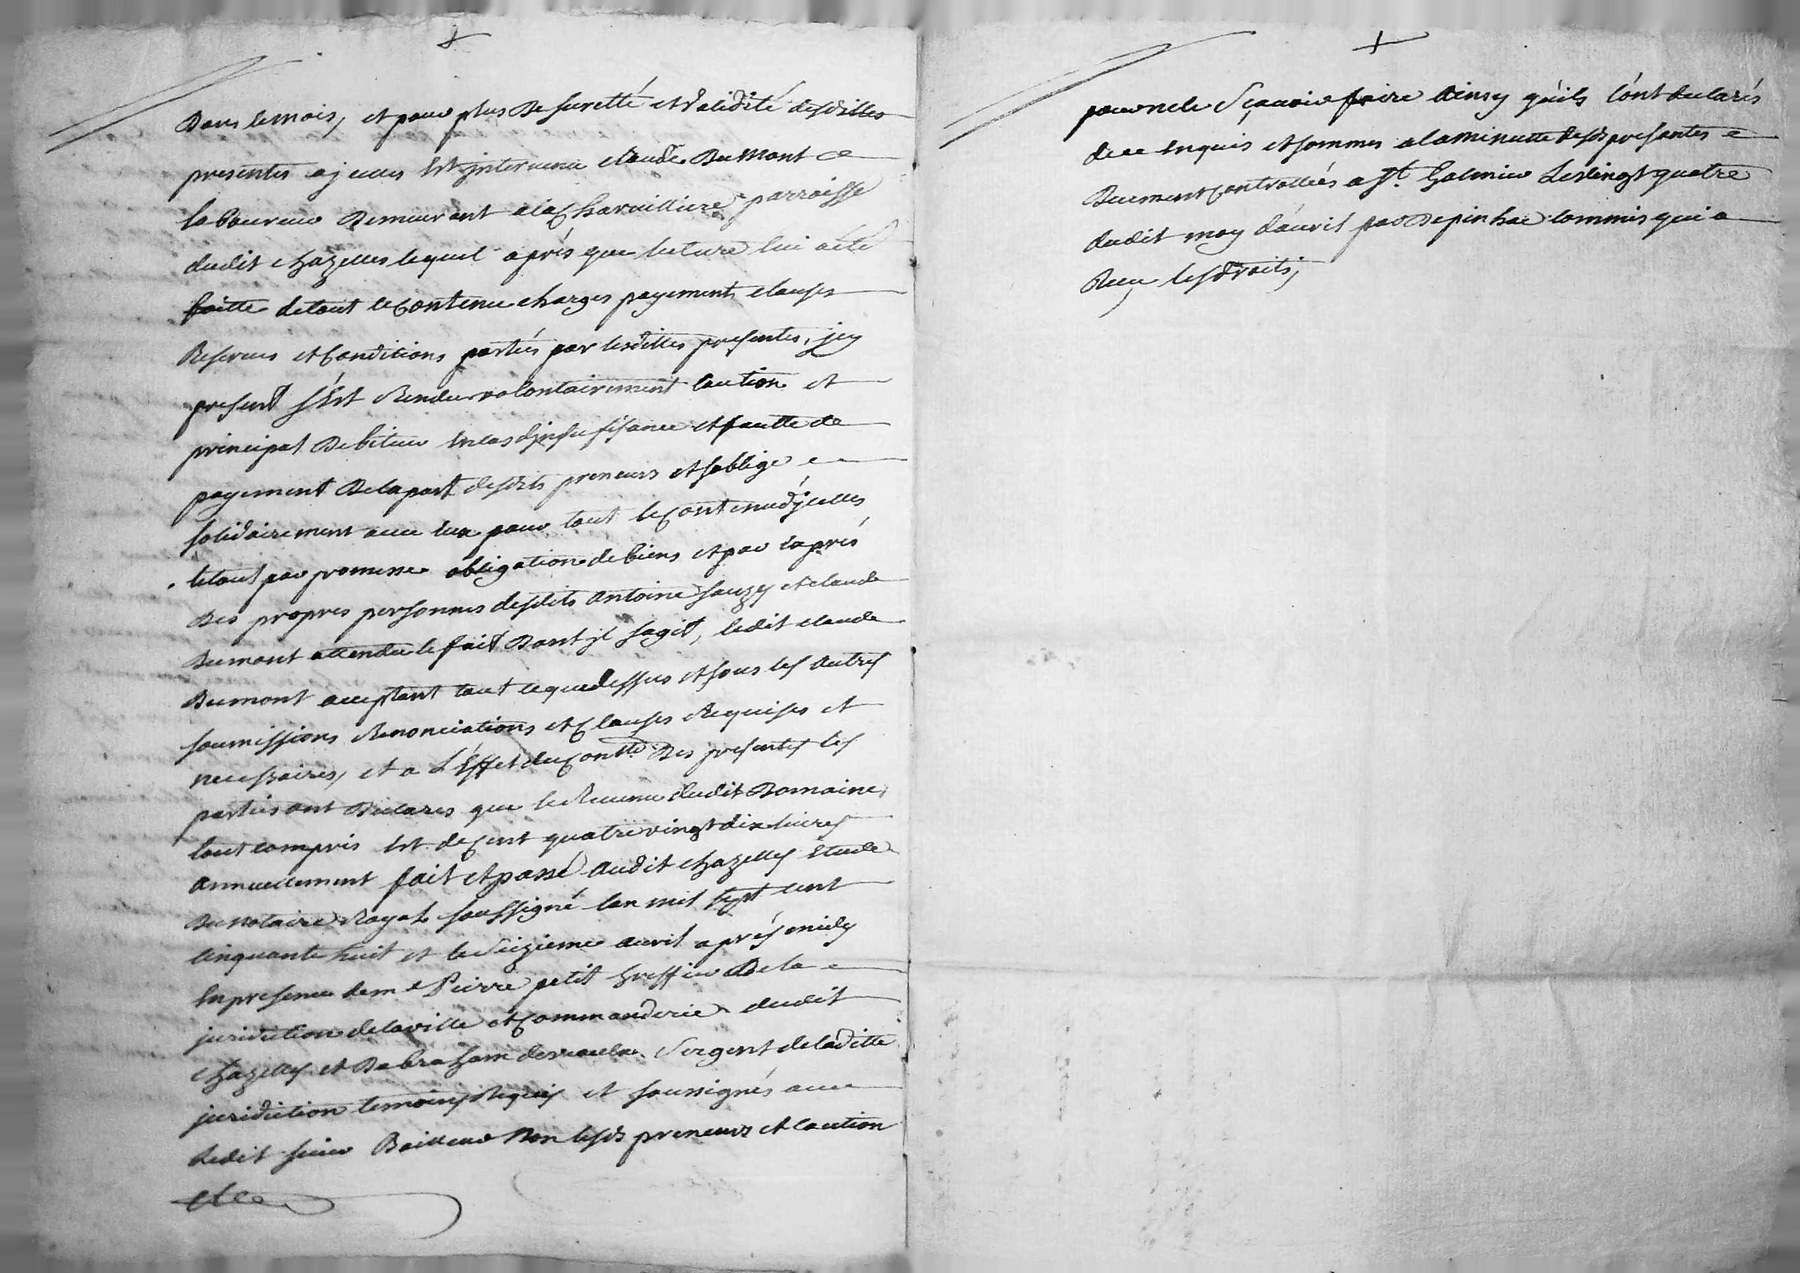 Dans le mois, et pour plus de suretté et validité desdittes
presentes a jceues Est jntervenu claude Dumont
laboureur Demeurant a la Charvilliere parroisse
dudit chazelles lequel après que lecture lui a été
faitte de tout le Contenu charges payements clauses
Reserves et Conditions portées par lesdittes presentes, jcy
present s'est Rendu volontairement Caution et
principal Debiteur en cas djnsufisance et fautte de
payement De la part desdits preneurs et soblige
solidairement avec Eux pour tout le Contenu djcelles
le tout par promesse obligation de biens et par Exprés
Des propres personnes desdits antoine sauzey et claude
Dumont attendu le fait Dont jl sagit, ledit claude
Dumont acceptant tout ce que dessus et sous les autres
soumissions Renonciations et Clauses Requises et
necessaires, et a L'Effet du Contlle Des presentes les
parties ont Declarés que le Revenu dudit Domaine
tout compris Est de Cent quatre vingt dix livres
annuellement fait et passé audit chazelles Etude
Du notaire Royal soussigné lan mil sept cent
cinquante huit et le seizieme avril aprés midy
En presence de me Pierre petit Greffier De la
juridiction de la ville et Commanderie dudit
chazelles et Dabraham Sergent de laditte
juridiction temoins Requis et soussignés avec
ledit sieur Bailleur Non lesds preneurs et Caution
pour ne le Sçavoir faire Ainsy qu'ils l'ont declarés
de ce Enquis et sommés a la minutte desds presentes
Duement Controllées a St. Galmier Le vingt quatre
dudit moy d'avril par Depinhac Commis qui a
Reçu les droits,